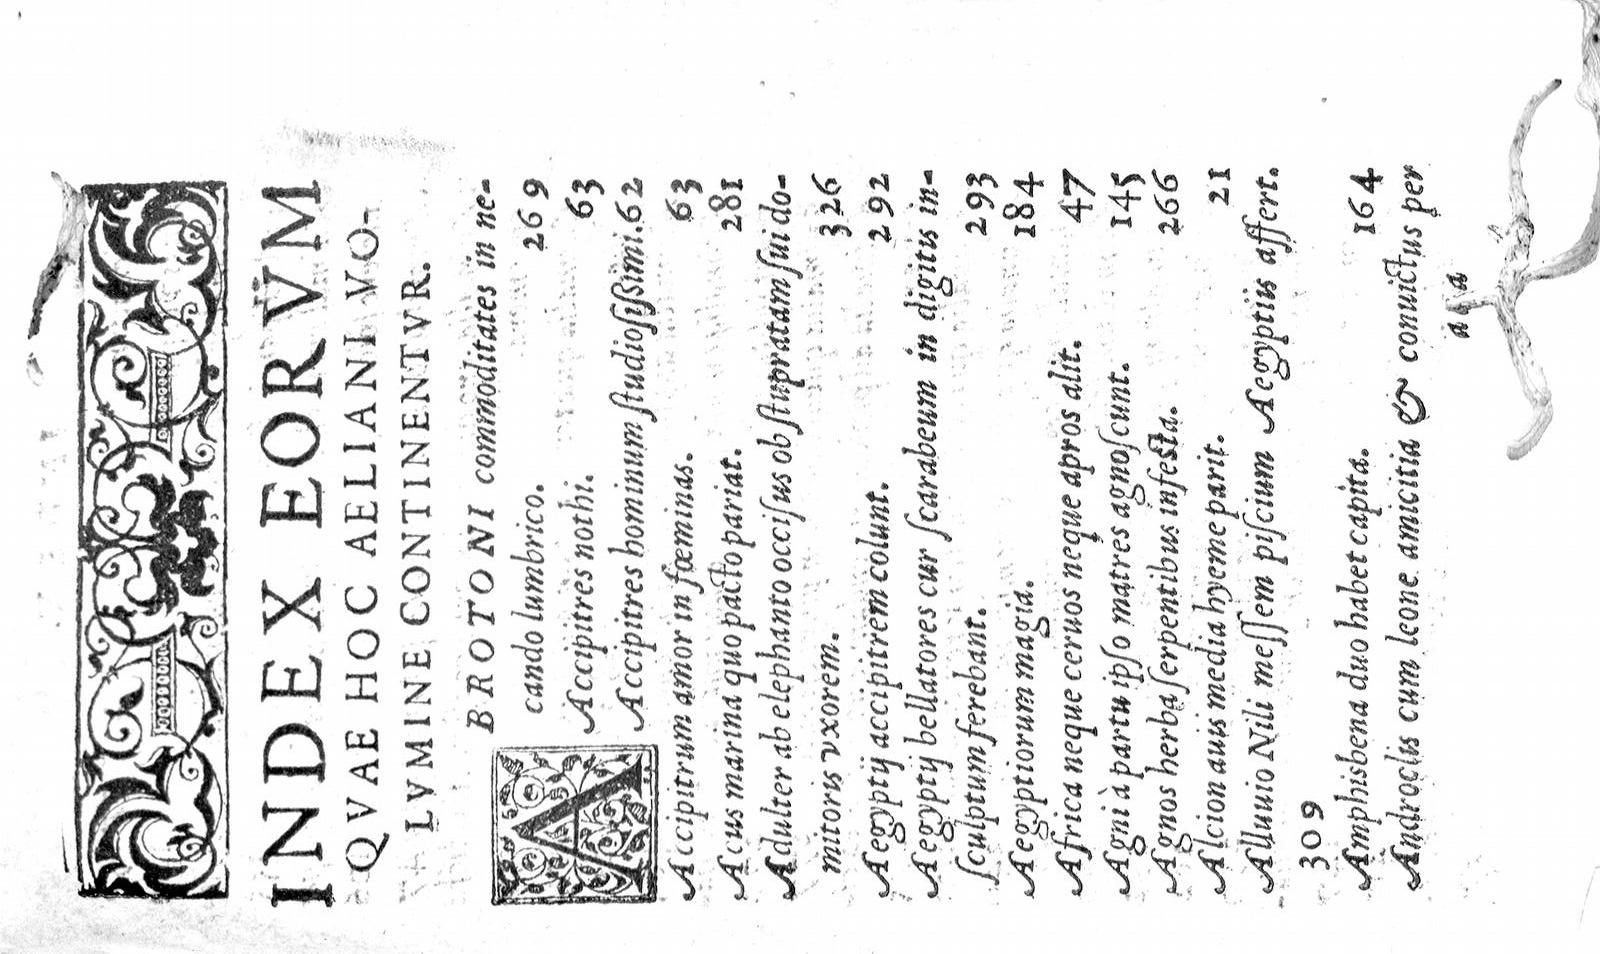 INDEX EORVM
QVAE HOC AELIANI VO-
LVMINE CONTINENTVR.
ABROTONI commoditates in ne-
cando lumbrico. 269
Accipitres nothi. 63
Accipitres hominum ſtudioſißimi. 62
Accipitrum amor in fœminas. 63
Acus marina quo pacto pariat. 281
Adulter ab elephanto occiſus ob ſtupratam ſui do-
mitoris vxorem. 326
Aegyptij accipitrem colunt. 292
Aegyptij bellatores cur ſcarabeum in digitis in-
ſculptum ferebant. 293
Aegyptiorum magia. 184
Africa neque ceruos neque apros alit. 47
Agni à partu ipſo matres agnoſcunt. 145
Agnos herba ſerpentibus infeſta. 266
Alcion auis media hyeme parit. 21
Alluuio Nili meſſem piſcium Aegyptiis affert.
309
Amphisbena duo habet capita. 164
Androclis cum leone amicitia & conuictus per
a a